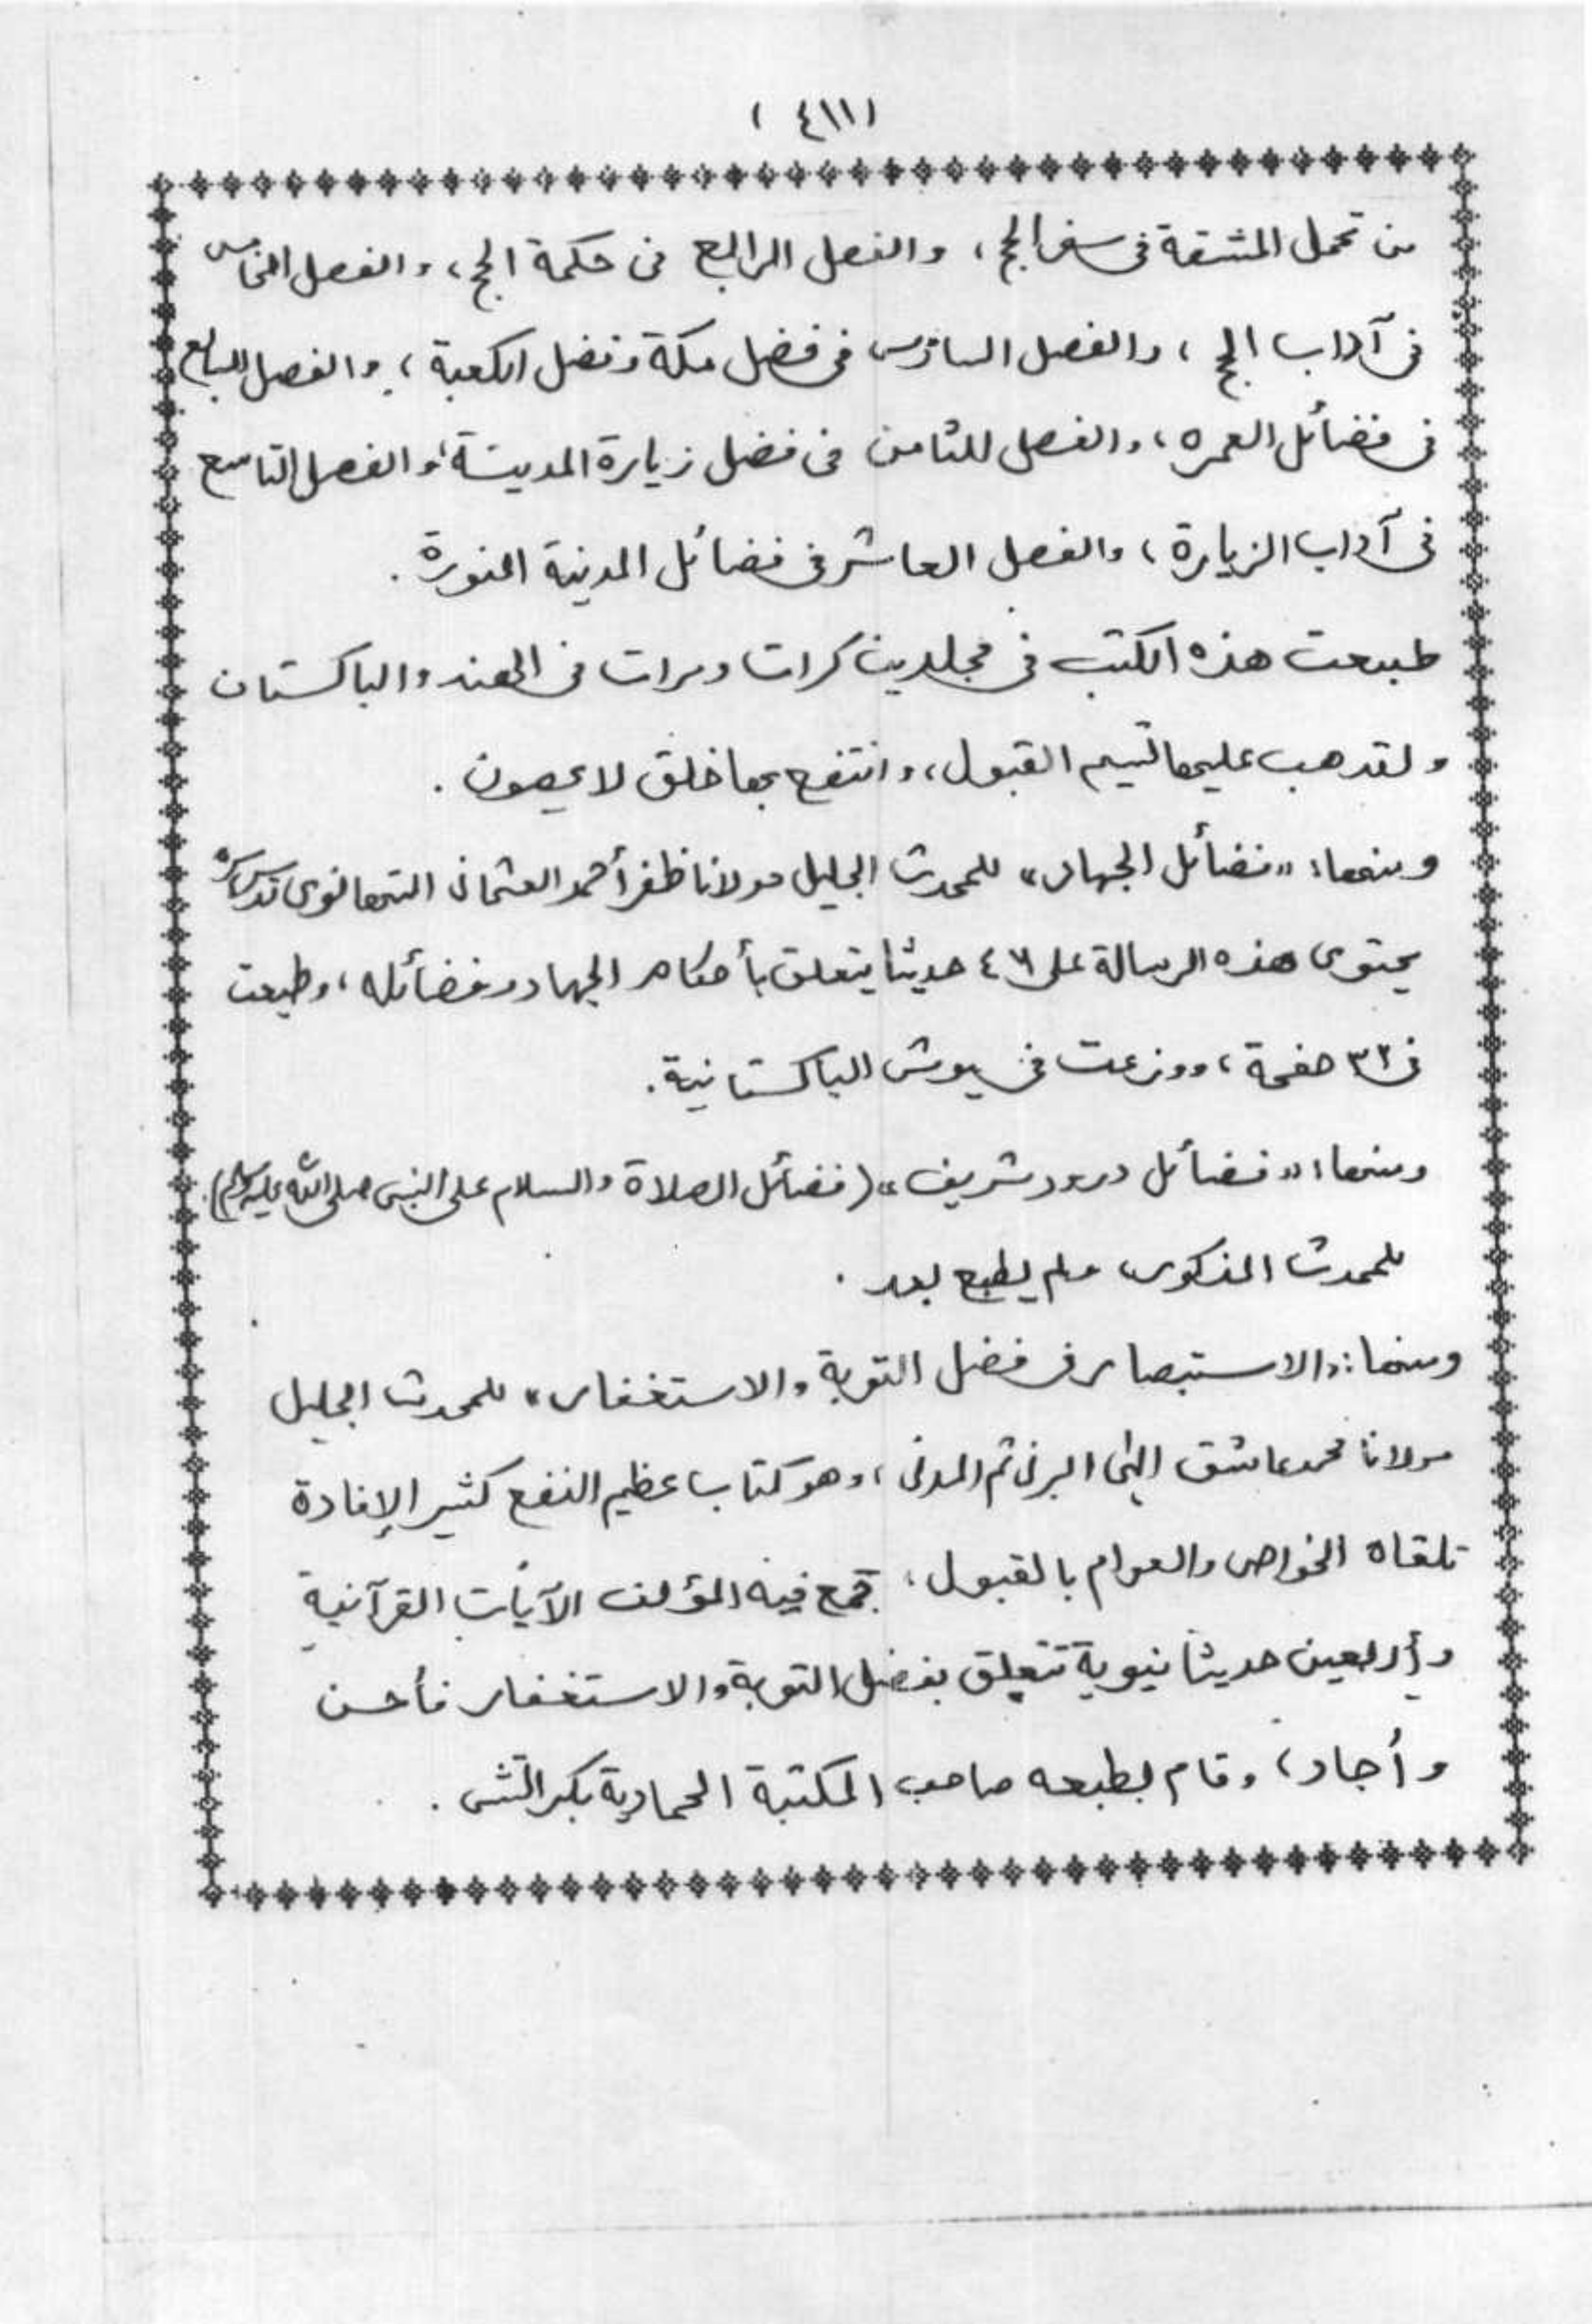 (٤١١)
من تحمل المشقة في سفر الحج، والفصل الرابع في حكمة الحج، والفصل الخامس
في آداب الحج، والفصل السادس في فضل مكة وفضل الكعبة، والفصل السابع
في فضائل العمره، والفصل للثامن في فضل زيارة المدينة، والفصل التاسع
في آداب الزيارة، والفصل العاشر في فضائل المدينة المنورة.
طبعت هذه الكتب في مجلدين كرات ومرات في الهند والباكستان
ولقد هب عليها نسيم القبول، وانتفع بها خلق لا يحصون.
ومنها: «فضائل الجهاد» للمحدث الجليل مولانا ظفر أحمد العثماني التهانوي قدس سره
يحتوي هذه الرسالة على حديثا يتعلق بأحكام الجهاد وفضائله، وطبعت
في ٣٢ صفحة، ووزعت في جيوش الباكستانية.
ومنها: «فضائل درود شريف» (فضائل الصلاة والسلام على النبي صلى الله عليه وسلم).
للمحدث المذكور، ولم يطبع بعد.
ومنها: «الاستبصار في فضل التوبة والاستغفار» للمحدث الجليل
مولانا محمد عاشق إلهي البرني ثم المدني، وهو كتاب عظيم النفع كثير الإفادة
تلقاه الخواص والعوام بالقبول، جمع فيه المؤلف الآيات القرآنية
وأربعين حديثا نبوية تتعلق بفضل التوبة والاستغفار فأحسن
وأجاد، وقام بطبعه صاحب المكتبة الحمادية بكراتشي.